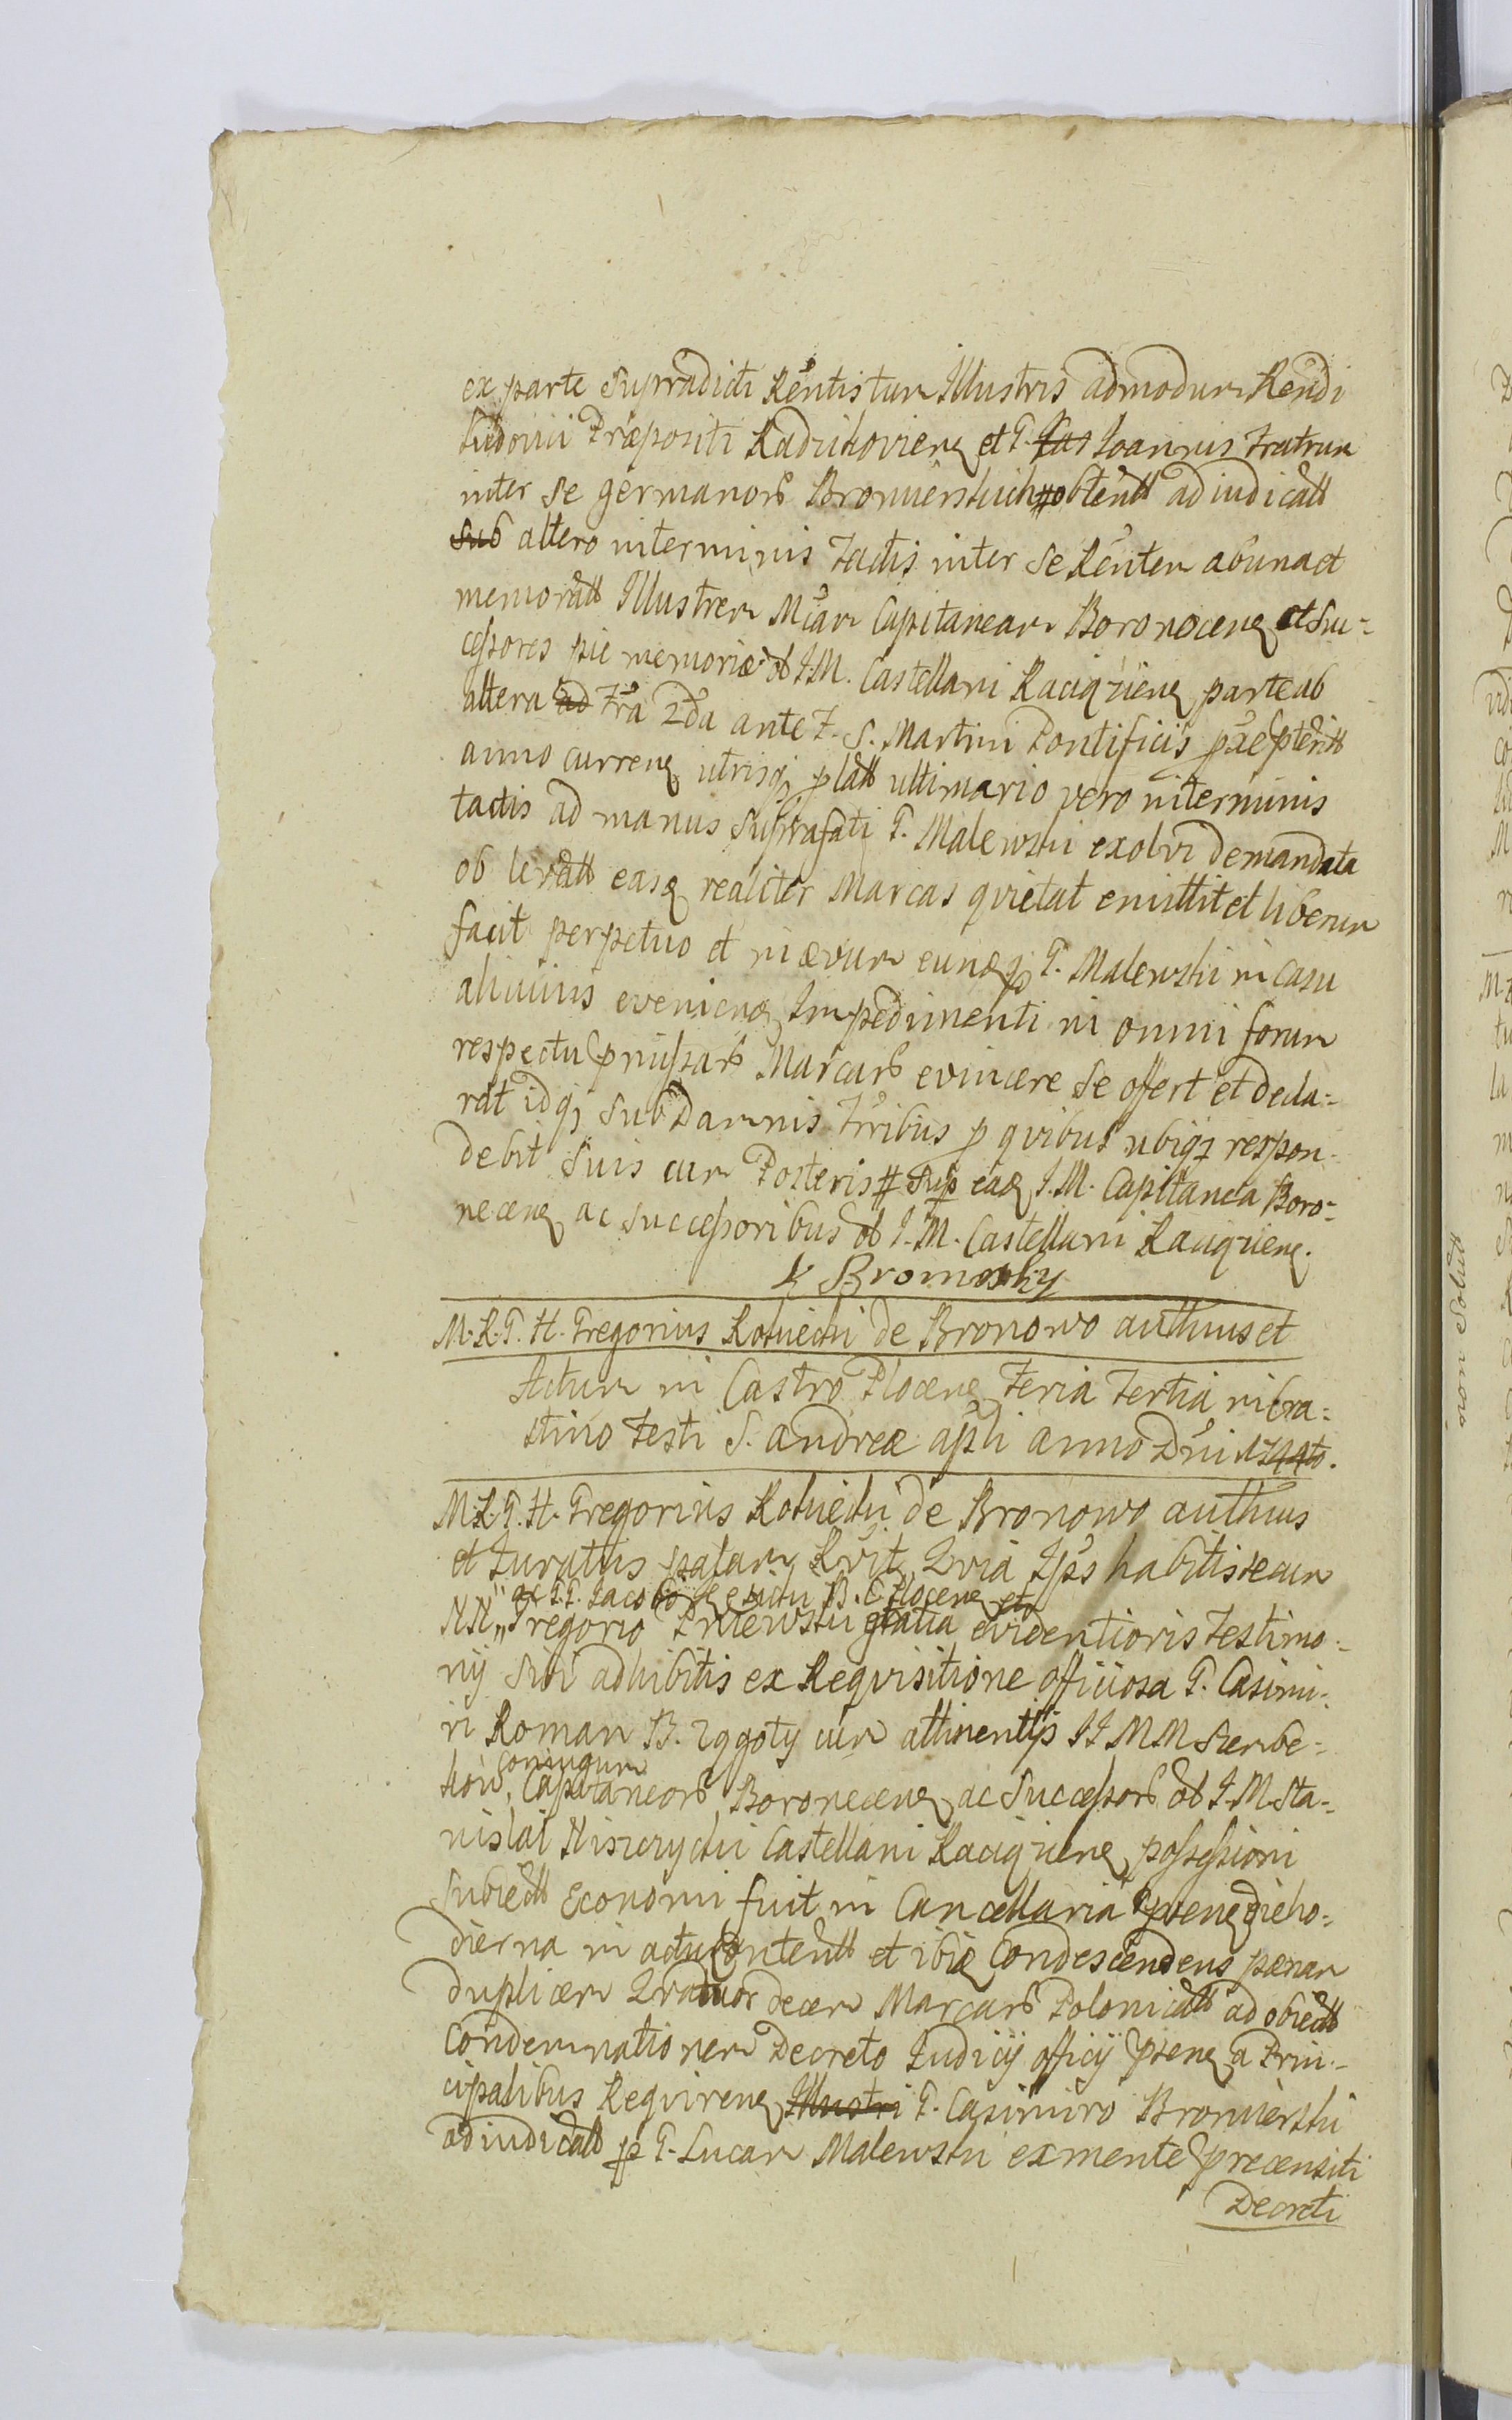 ex parte Supradicti Rēntis tum Illustris admodum Rendi
Ludovici Præpositi Radzikoviens et G. Joannis Fratrum
inter Se germanors Bronierskich # obtentt adiudicatt
Sub altero interminis Tactis inter Se Rēntem ab una et
memoratt Illustrem Mcam Capitaneam Boronocens et Suc=
cessores pie memoriæ ol I. M. Castellani Raciąziens parte ab
altera ad Fra 2da ante F. S. Martini Pontificis
anno currens utrisq latt ultimario vero interminis
tactis ad manus Suprafati G. Malewski exolvi demandata
ob levatt easq realiter Marcas quietat emittit et liberum
facit perpetuo et in ævum eundq G. Malewski in casu
alicuius eveniens Impedimenti in omni forum
respectu pmissars Marcars evincere Se offert et decla=
rat idq Sub Damnis Trribus p quibus ubiq respon=
debit Suis cum Posteris # Sup eadq I. M. Capitanea Boro=
necens ac Successoribus ol I. M. Castellani Raciąziens.
Bromirsky
M. R. G. H. Gregorius Rokicki de Bronowo authus et
Actum in Castro Plocens Feria Tertia in Cra=
stino Festi S. Andreæ apli anno Dni 1744to.
M. R. G. H. Gregorius Rokicki de Bronowo authus
et Juratus palam Rvit Qvia Ips habitis secum
ac G. G. Jacobo B. C. Plocens et
NN" Gregorio Pniewski gratia evidentioris Testimo=
nij Sibi adhibitis ex Requisitione officiosa G. Casimi=
ri Roman B. Zggoty cum attinentijs II MM Szembe=
coniugum
kow, Capitaneors Boronecens ac Successors ol I. M. Sta=
nislai Niszczycki Castellani Raciąziens possessioni
Subiectt Economi fuit in Cancellaria psens die ho=
dierna in actu contentt et ibiq Condescendens pænam
duplicem Qvatuor decem Marcars Polonicatt ad obiectt
Condemnationem Decreto Judicij officij psens a Prin=
cipalibus Requirens Illustri G. Casimiro Bronierski
adiudicatt p G. Lucam Malewski ex mente præcensiti
Decreti